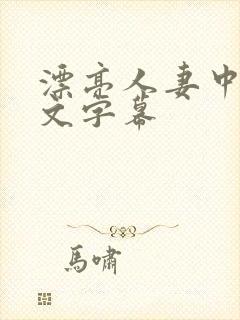 漂亮人妻中
文字幕
馬嘯